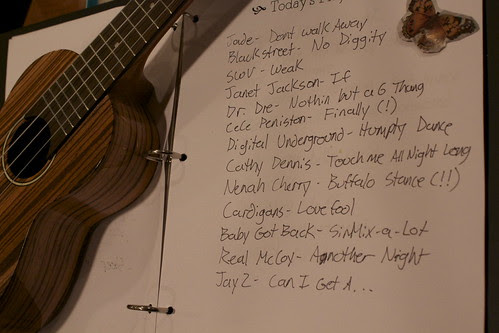 Today's
Jade- Dont walk Away
Blackstreet- No Diggity
SWV- Weak
Janet Jackson- If
Dr. Dre- Nothin but a G Thang
CeCe Peniston- Finally (!)
Digital Underground- Humpty Dance
Cathy Dennis- Touch me All Night Long
Nenah Cherry- Buffalo Stance (!!)
Cardigans- Lovefool
Baby Got Back- SirMix-a-Lot
Real McCoy- Another Night
Jay Z- Can I Get A...